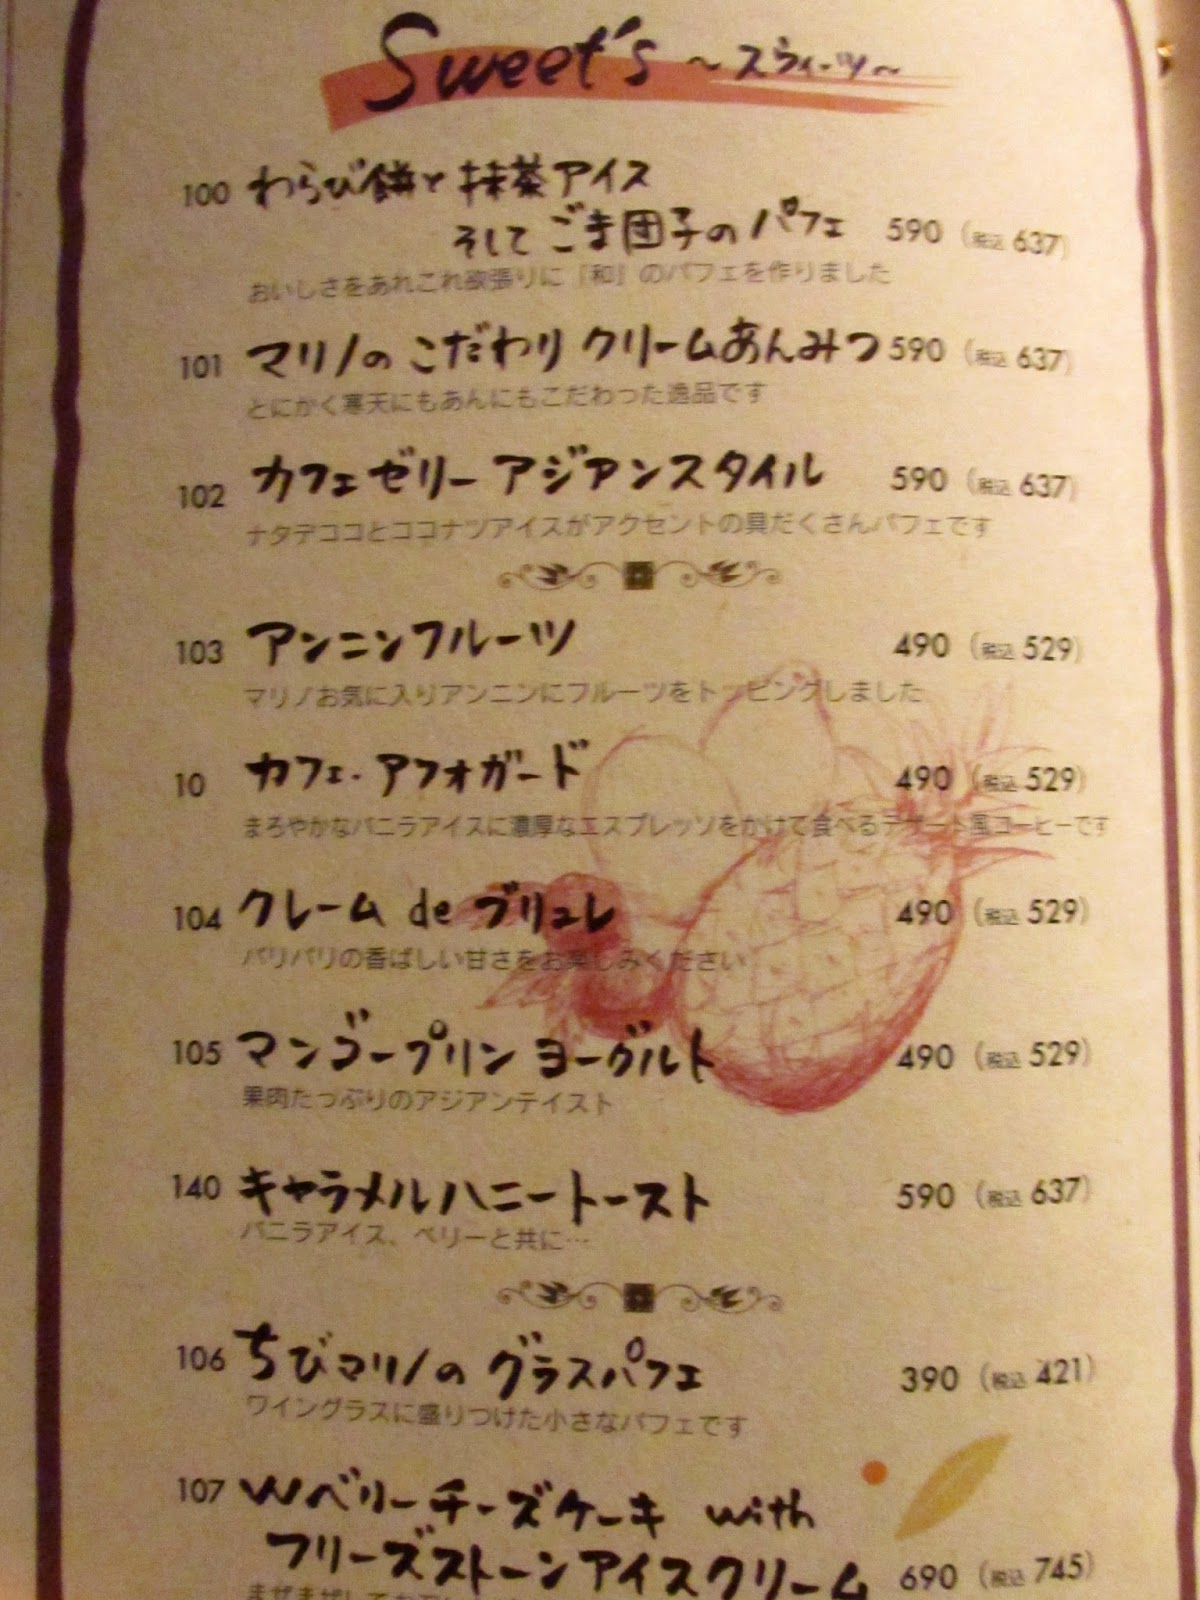 Sweet's ～スウィーツ～
100 わらび餅と抹茶アイス
そしてごま団子のパフェ 590 (税込 637)
おいしさをあれこれ欲張りに「和」のパフェを作りました
101 マリノのこだわりクリームあんみつ 590 (税込 637)
とにかく寒天にもあんにもこだわった逸品です
102 カフェゼリー アジアンスタイル 590 (税込 637)
ナタデココとココナツアイスがアクセントの具だくさんパフェです
103 アンニンフルーツ 490 (税込 529)
マリノお気に入りアンニンにフルーツをトッピングしました
10 カフェ・アフォガード 490 (税込 529)
まろやかなバニラアイスに濃厚なエスプレッソをかけて食べるデザート風コーヒーです
104 クレーム de ブリュレ 490 (税込 529)
パリパリの香ばしい甘さをお楽しみください
105 マンゴープリン ヨーグルト 490 (税込 529)
果肉たっぷりのアジアンテイスト
140 キャラメルハニートースト 590 (税込 637)
バニラアイス、ベリーと共に…
106 ちびマリノの グラスパフェ 390 (税込 421)
ワイングラスに盛りつけた小さなパフェです
107 Wベリーチーズケーキ with
フリーズストーンアイスクリーム 690 (税込 745)